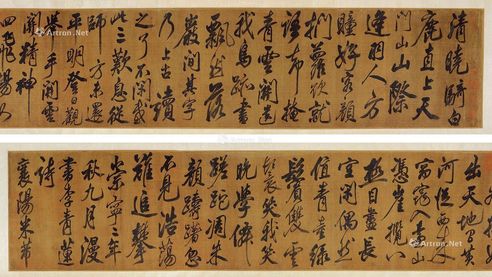 清曉騎白
鹿直上天
門山山際
逢羽人方
瞳好容顏
捫蘿欲就
語却掩
青雲關遺
我鳥跡書
飄然落
巖間其字
乃上古讀
之了不閑感
此三歎息從
師方未還
平明登日觀
舉手開雲
關精神
四飛揚如
出天地間黄
河從西來
窈窕入遠山
憑崖攬八
極目盡長
空閑偶然
值青童綠
髮雙雲
鬟笑我
晚學僊
蹉跎凋朱
顏躊躇忽
不見浩蕩
難追攀
崇寧三年
秋九月漫
書李青蓮
詩
襄陽米芾
Artron.Net
Artron.Net
Artron.Net